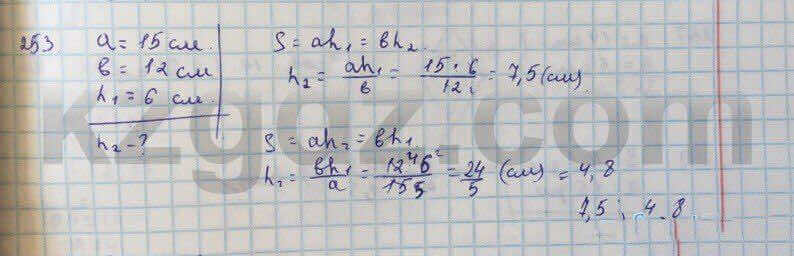 253 a = 15 см.
в = 12 см
h₁ = 6 см.
h₂ - ?
S = ah₁ = вh₂.
h₂ = ah₁/в = 15 · 6/12 = 7,5 (см).
S = ah₂ = вh₁.
h₂ = вh₁/a = 12⁴ 6²/15 5 = 24/5 (см) = 4,8
7,5 ; 4.8.
kzgdz.com